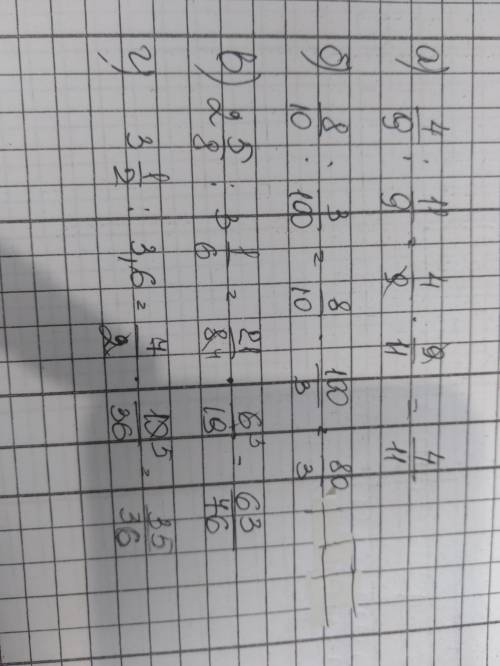 а) 4/9 : 11/9 = 4/9 · 9/11 = 4/11
б) 8/10 : 3/100 = 8/10 · 100/3 = 80/3
в) 2 5/8 : 3 1/6 = 21/8 4 · 6 3/19 = 63/76
г) 3 1/2 : 3,6 = 7/2 · 10 5/36 = 35/36